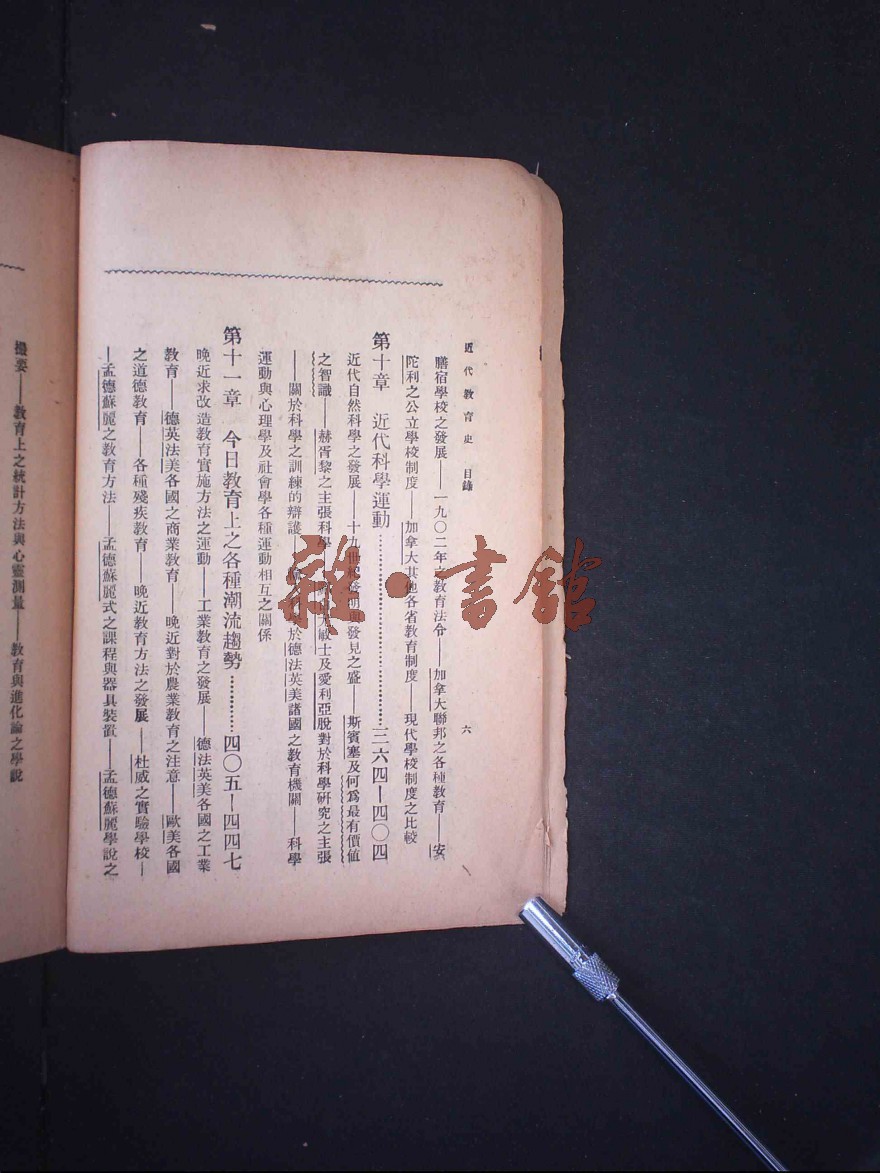 近代教育史 目錄
六
膳宿學校之發展——一九〇二年之教育法令——加拿大聯邦之各種教育——安
陀利之公立學校制度——加拿大其他各省教育制度——現代學校制度之比較
第十章 近代科學運動…………三六四—四〇四
近代自然科學之發展——十九世紀發明與發見之盛——斯賓塞及何為最有價值
之智識——赫胥黎之主張科學——敏士及愛利亞脫對於科學研究之主張
——關於科學之訓練的辯護——於德法英美諸國之教育機關——科學
運動與心理學及社會學各種運動相互之關係
第十一章 今日教育上之各種潮流趨勢…………四〇五—四四七
晚近求改造教育實施方法之運動——工業教育之發展——德法英美各國之工業
教育——德英法美各國之商業教育——晚近對於農業教育之注意——歐美各國
之道德教育——各種殘疾教育——晚近教育方法之發展——杜威之實驗學校—
—孟德蘇麗之教育方法——孟德蘇麗式之課程與器具裝置——孟德蘇麗學說之
撮要——教育上之統計方法與心靈測量——教育與進化論之學說
雜·書館